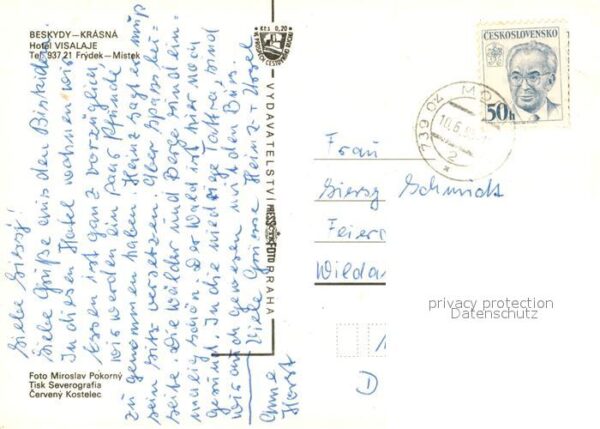 BESKYDY—KRÁSNÁ
Hotel VISALAJE
Tel. 937 21 Frýdek - Místek
Liebe Giesy!
Liebe Grüße aus den Biskiden.
In diesen Hotel wohnen wir
Essen ist ganz vorzüglich
wir werden ein paar Pfunde
zu genommen haben Heinz sagt er muß
sein sitz versetzen. Aber Spass bei-
seite. Die Wälder und Berge sind ein-
malig schön. Der Wald ist hier noch
gesund. In die niedrige Tattra, sind
wir auch gewesen mit den Bus.
Viele Grüsse Heinz + Ursel
Anne
Horst
Foto Miroslav Pokorný
Tisk Severografia
Červený Kostelec
Kčs 0,20
VYDAVATELSTVÍ PRESSFOTO PRAHA
ČESKOSLOVENSKO
50h
739 02 MO
10.6.
2
Frau
Giersy Schmidt
Feiers
Wilda
privacy protection
Datenschutz